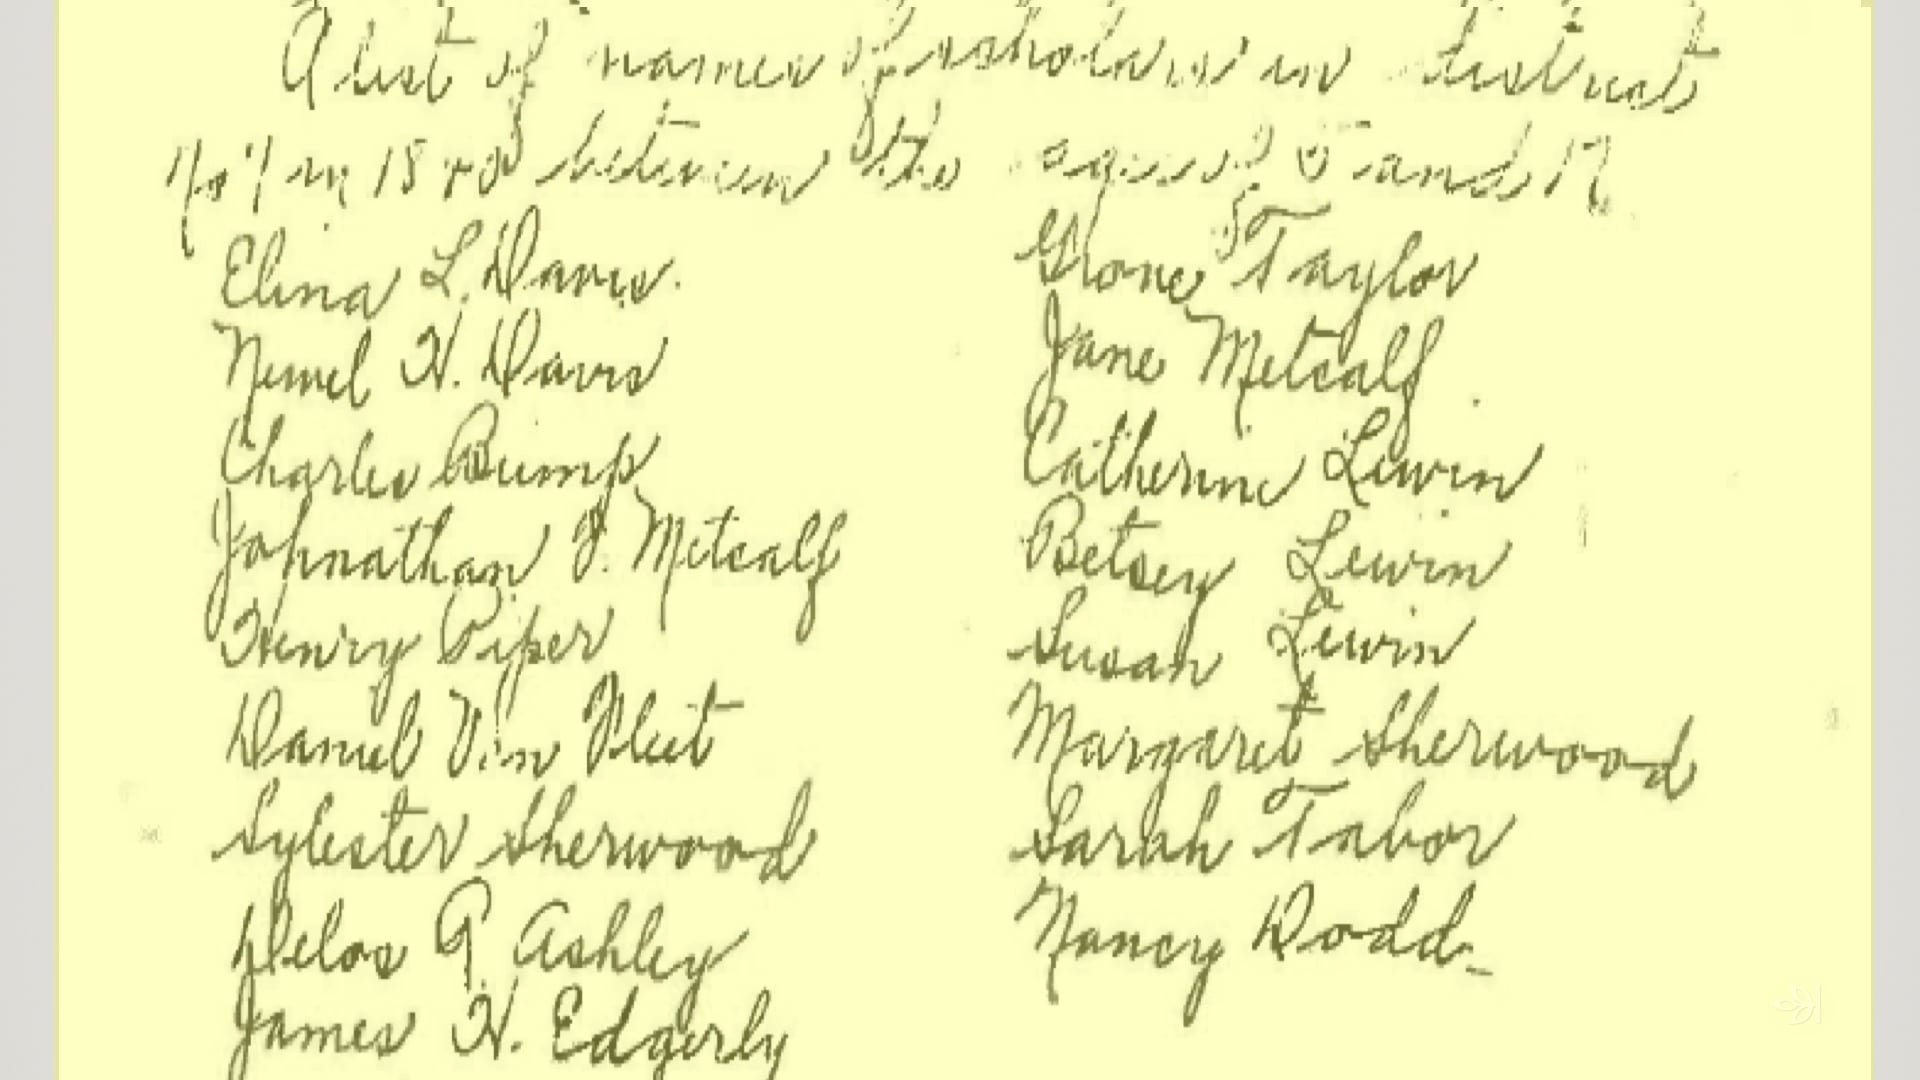 A list of names of scholars in District
No 1 in 18 between the ages of 5 and 17
Elina L. Davis.
H. Davis
Charles Bump
Johnathan J. Metcalf
Henry Piper
Daniel Van Fleet
Sylester Sherwood
Delos G. Ashley
James H. Edgerly
Taylor
Jane Metcalf
Catherine Lewin
Betsey Lewin
Susan Lewin
Margaret Sherwood
Sarah Tabor
Nancy Dodd